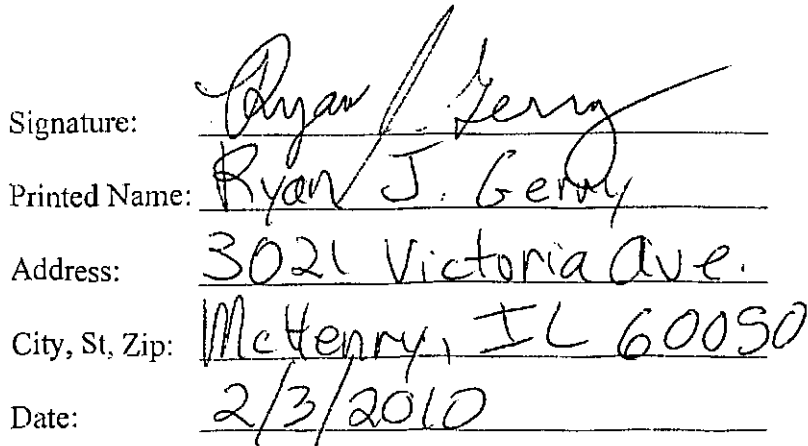 Signature: Ryan J. Gerry
Printed Name: Ryan J. Gerry
Address: 3021 Victoria Ave.
City, St, Zip: McHenry, IL 60050
Date: 2/3/2010